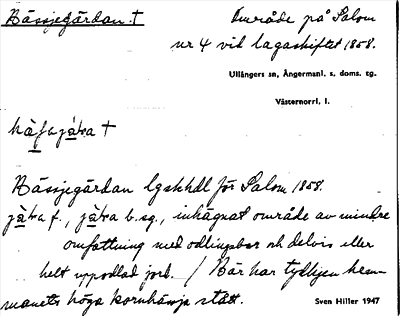 Bässjegärdan †
Område på Salom
nr 4 vid lagaskiftet 1858.
Ullångers sn, Ångermanl. s. doms. tg.
Västernorrl. l.
jäka †
Bässjegärdan lgskhdl för Salom 1858.
f., b. sg., inhägnat område av mindre
omfattning med odlingsbar och delvis eller
helt uppodlad jord. / Här har tydligen hem-
manets höga kornhässja stått.
Sven Hiller 1947